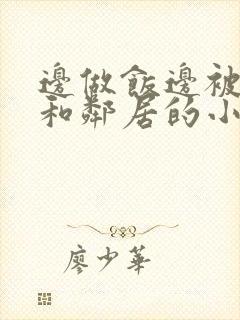 邊做飯邊被
和鄰居的小
廖少華